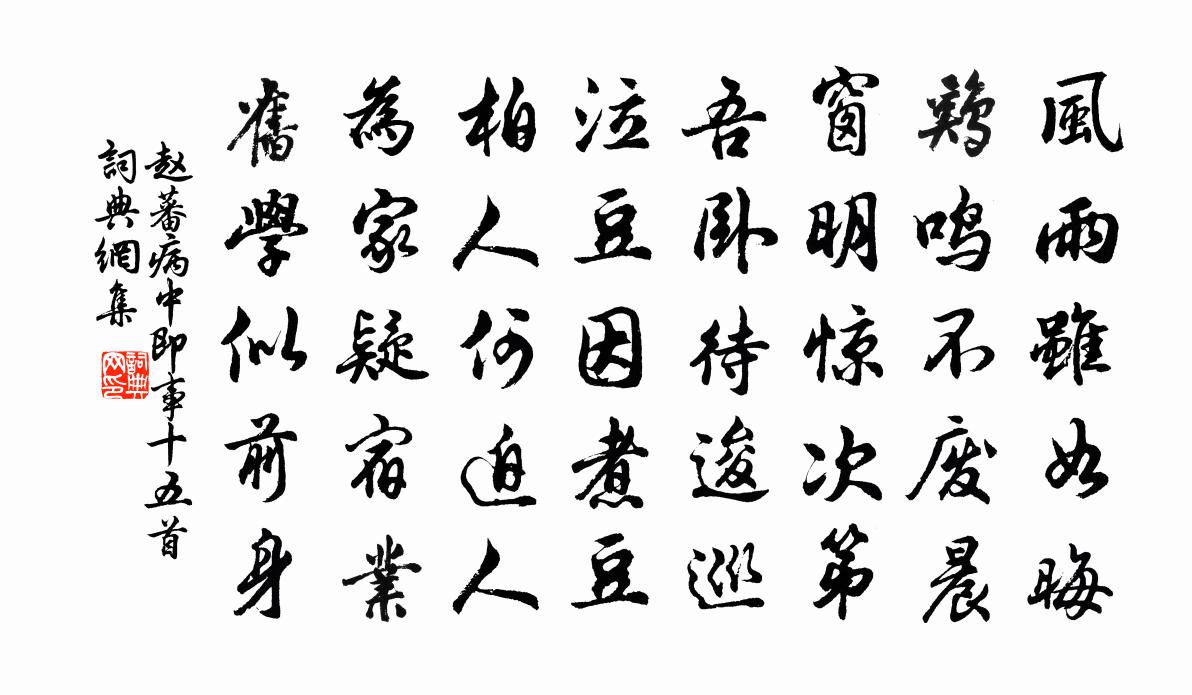 風雨雖如晦
鶏鸣不废晨
窗明惊次第
吾卧待逡巡
泣豆因煮豆
柏人何迫人
為家疑宿業
舊學似前身
赵蕃病中即事十五首
詞典網集
詞典网印